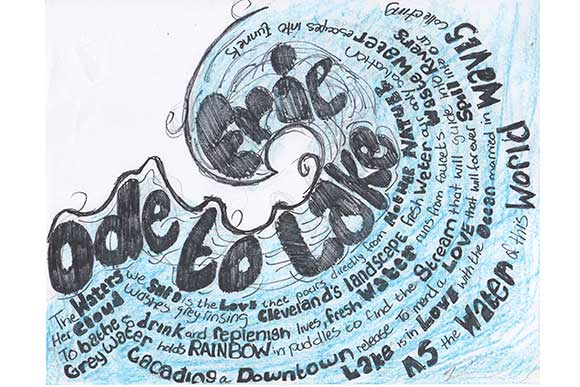 Ode to Lake Erie
The Waters we SHED is the Love that pours directly from MOTHER NATURE
Her Cloud washes grey rinsing Cleveland's landscape fresh Water a day salvation escapes into tunnels
To bathe to drink and replenish lives, fresh Water runs from faucets into Waste Water
Grey Water holds RAINBOW in puddles to find the Stream that will glide into our Rivers
Cacading a Downtown release To mend a LOVE that will forever Spill
Lake is in LOVE with the Ocean married in WAVES collecting
AS the Water of this World